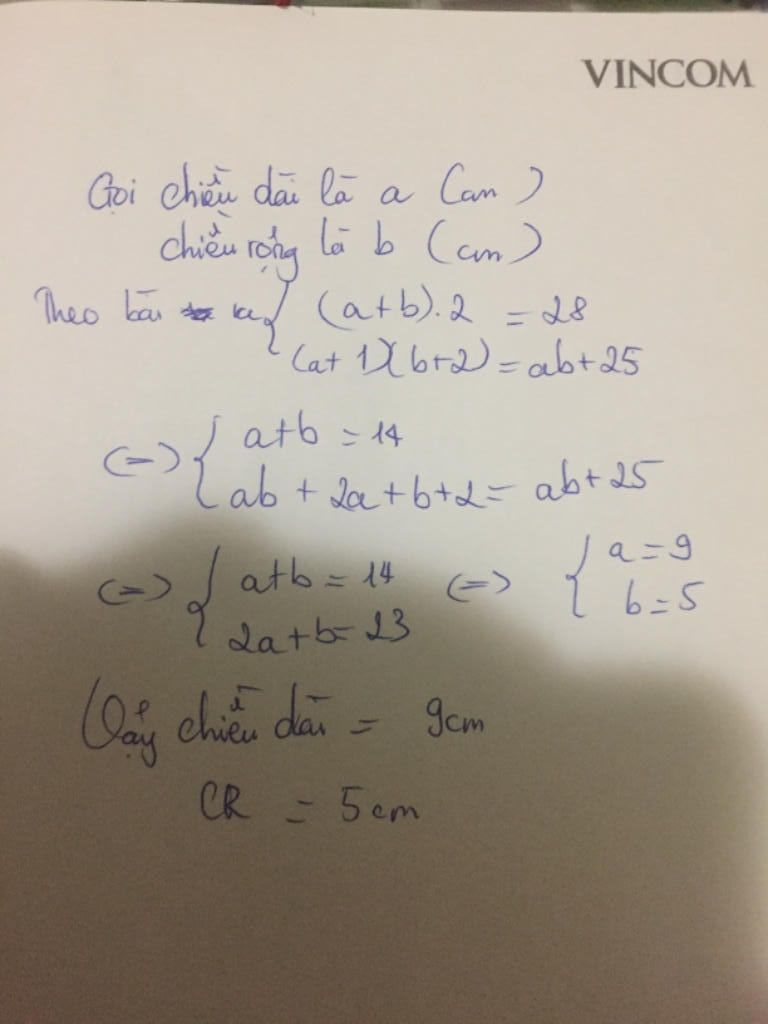 VINCOM
Gọi chiều dài là a (cm)
chiều rộng là b (cm)
Theo bài ta { (a+b).2 = 28
(a+1)(b+2) = ab+25
<=> { a+b = 14
ab + 2a + b + 2 = ab + 25
<=> { a+b = 14 <=> { a = 9
2a + b = 23 b = 5
Vậy chiều dài = 9cm
CR = 5cm